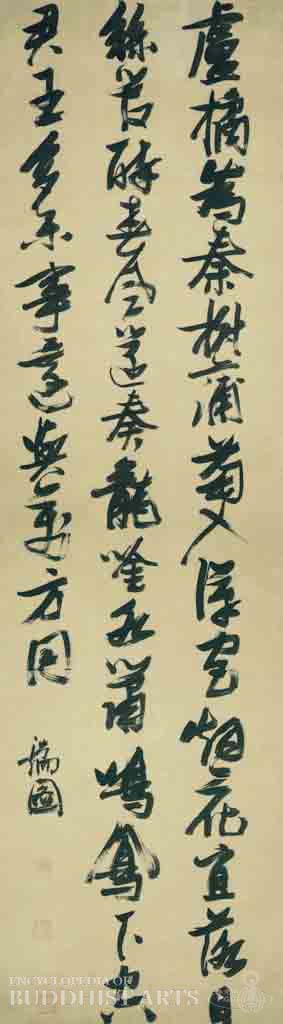 盧橘為秦樹蒲萄入漢宮烟花宜落日
絲管醉春風笛奏龍唫水簫鳴鳳下空
君王多樂事還與萬方同
瑞圖
ENCYCLOPEDIA OF
BUDDHIST ARTS